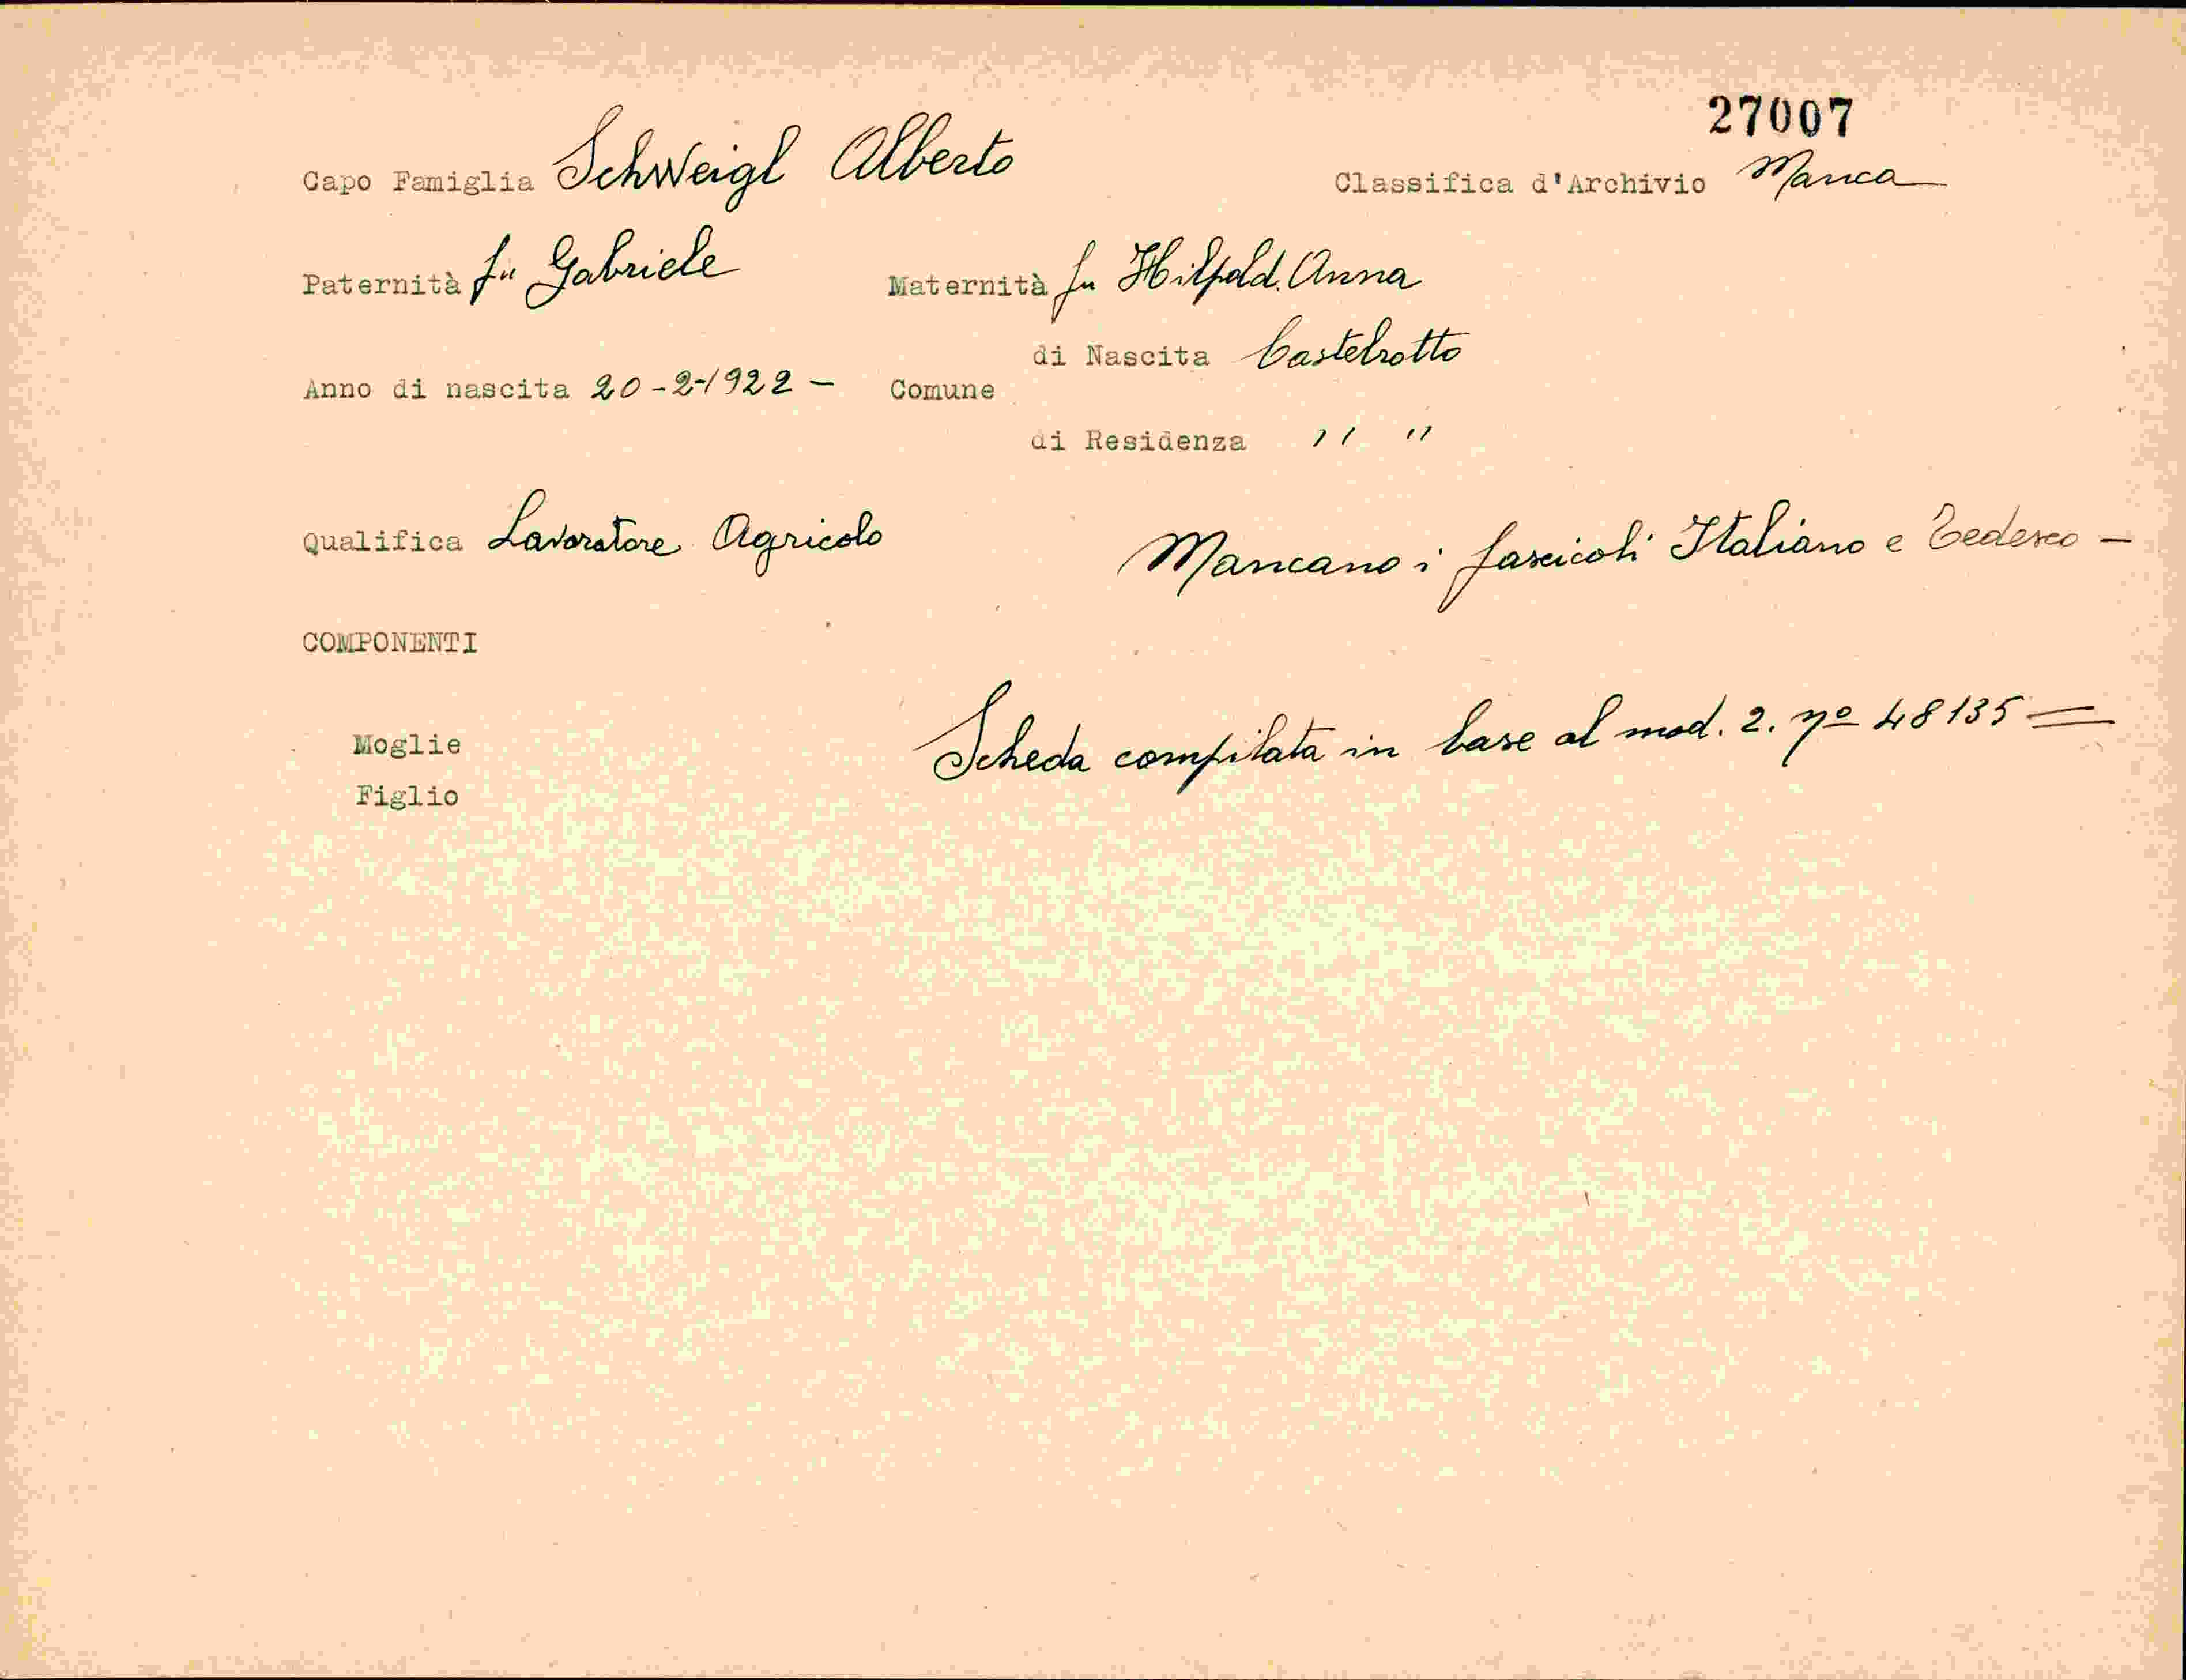 27007
Capo Famiglia Schweigl Alberto Classifica d'Archivio Manca
Paternità fu Gabriele Maternità fu Hilpold Anna
di Nascita Castelrotto
Anno di nascita 20-2-1922 - Comune
di Residenza " "
Qualifica Lavoratore Agricolo Mancano i fascicoli Italiano e Tedesco -
COMPONENTI
Moglie Scheda compilata in base al mod. 2. nº 48135 =
Figlio